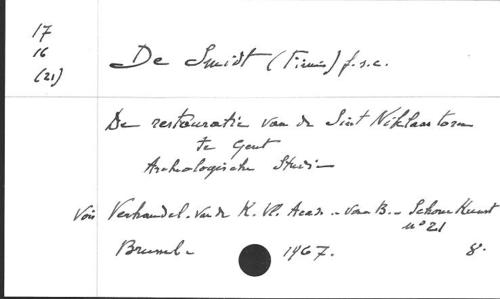 17
16
(21)
De Smidt (Firmin) f.s.c.
De restauratie van de Sint Niklaastoren
te Gent
Archeologische Studie
Voir Verhandel. van de K. Vl. Acad. - voor B. - Schone Kunst
n° 21
Brussel 1967. 8°